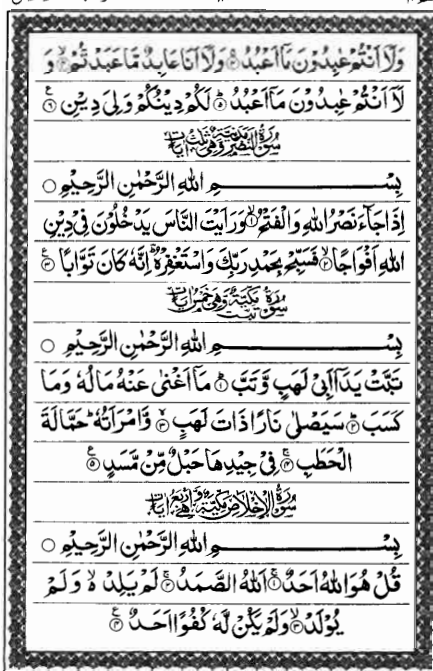 وَلَاۤ اَنْتُمْ عٰبِدُوْنَ مَاۤ اَعْبُدُ ۚ۝۳ وَلَاۤ اَنَا عَابِدٌ مَّا عَبَدْتُّمْ ۙ۝۴ وَ
لَاۤ اَنْتُمْ عٰبِدُوْنَ مَاۤ اَعْبُدُ ۝۵ لَكُمْ دِيْنُكُمْ وَلِيَ دِيْنِ ۝۶
سُوْرَةُ النَّصْرِ مَدَنِيَّةٌ وَّهِيَ ثَلٰثُ اٰيَاتٍ
بِسْمِ اللّٰهِ الرَّحْمٰنِ الرَّحِيْمِ ۝
اِذَا جَآءَ نَصْرُ اللّٰهِ وَالْفَتْحُ ۙ۝۱ وَرَاَيْتَ النَّاسَ يَدْخُلُوْنَ فِيْ دِيْنِ
اللّٰهِ اَفْوَاجًا ۙ۝۲ فَسَبِّحْ بِحَمْدِ رَبِّكَ وَاسْتَغْفِرْهُ ؕ اِنَّهٗ كَانَ تَوَّابًا ۝۳
سُوْرَةُ تَبَّتْ مَكِّيَّةٌ وَّهِيَ خَمْسُ اٰيَاتٍ
بِسْمِ اللّٰهِ الرَّحْمٰنِ الرَّحِيْمِ ۝
تَبَّتْ يَدَاۤ اَبِيْ لَهَبٍ وَّتَبَّ ؕ۝۱ مَاۤ اَغْنٰى عَنْهُ مَالُهٗ وَمَا
كَسَبَ ؕ۝۲ سَيَصْلٰى نَارًا ذَاتَ لَهَبٍ ۚۖ۝۳ وَّامْرَاَتُهٗ ؕ حَمَّالَةَ
الْحَطَبِ ۚ۝۴ فِيْ جِيْدِهَا حَبْلٌ مِّنْ مَّسَدٍ ۝۵
سُوْرَةُ الْاِخْلَاصِ مَكِّيَّةٌ وَّهِيَ اَرْبَعُ اٰيَاتٍ
بِسْمِ اللّٰهِ الرَّحْمٰنِ الرَّحِيْمِ ۝
قُلْ هُوَ اللّٰهُ اَحَدٌ ۚ۝۱ اَللّٰهُ الصَّمَدُ ۚ۝۲ لَمْ يَلِدْ ۙ وَلَمْ
يُوْلَدْ ۙ۝۳ وَلَمْ يَكُنْ لَّهٗ كُفُوًا اَحَدٌ ۝۴